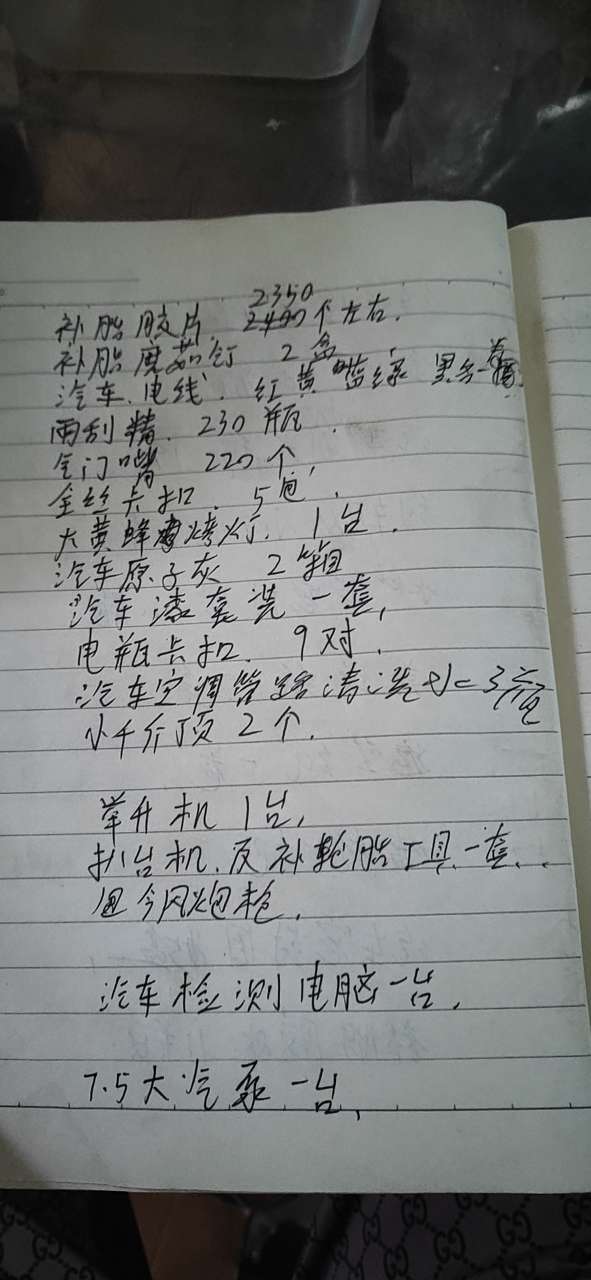 2350
补胎胶片. 2400个左右.
补胎蘑菇钉 2盒
汽车.电线. 红黄蓝绿 黑各一卷
雨刮精. 230瓶.
气门嘴 220个,
全丝卡扣. 5包.
大黄蜂烤灯. 1台.
汽车原子灰 2箱
汽车漆套装一套,
电瓶卡扣. 9对.
汽车空调管路清洗 3
小千斤顶 2个.
举升机 1台,
扒台机.及补轮胎工具一套.
风炮枪.
汽车检测电脑一台.
7.5大汽泵一台,